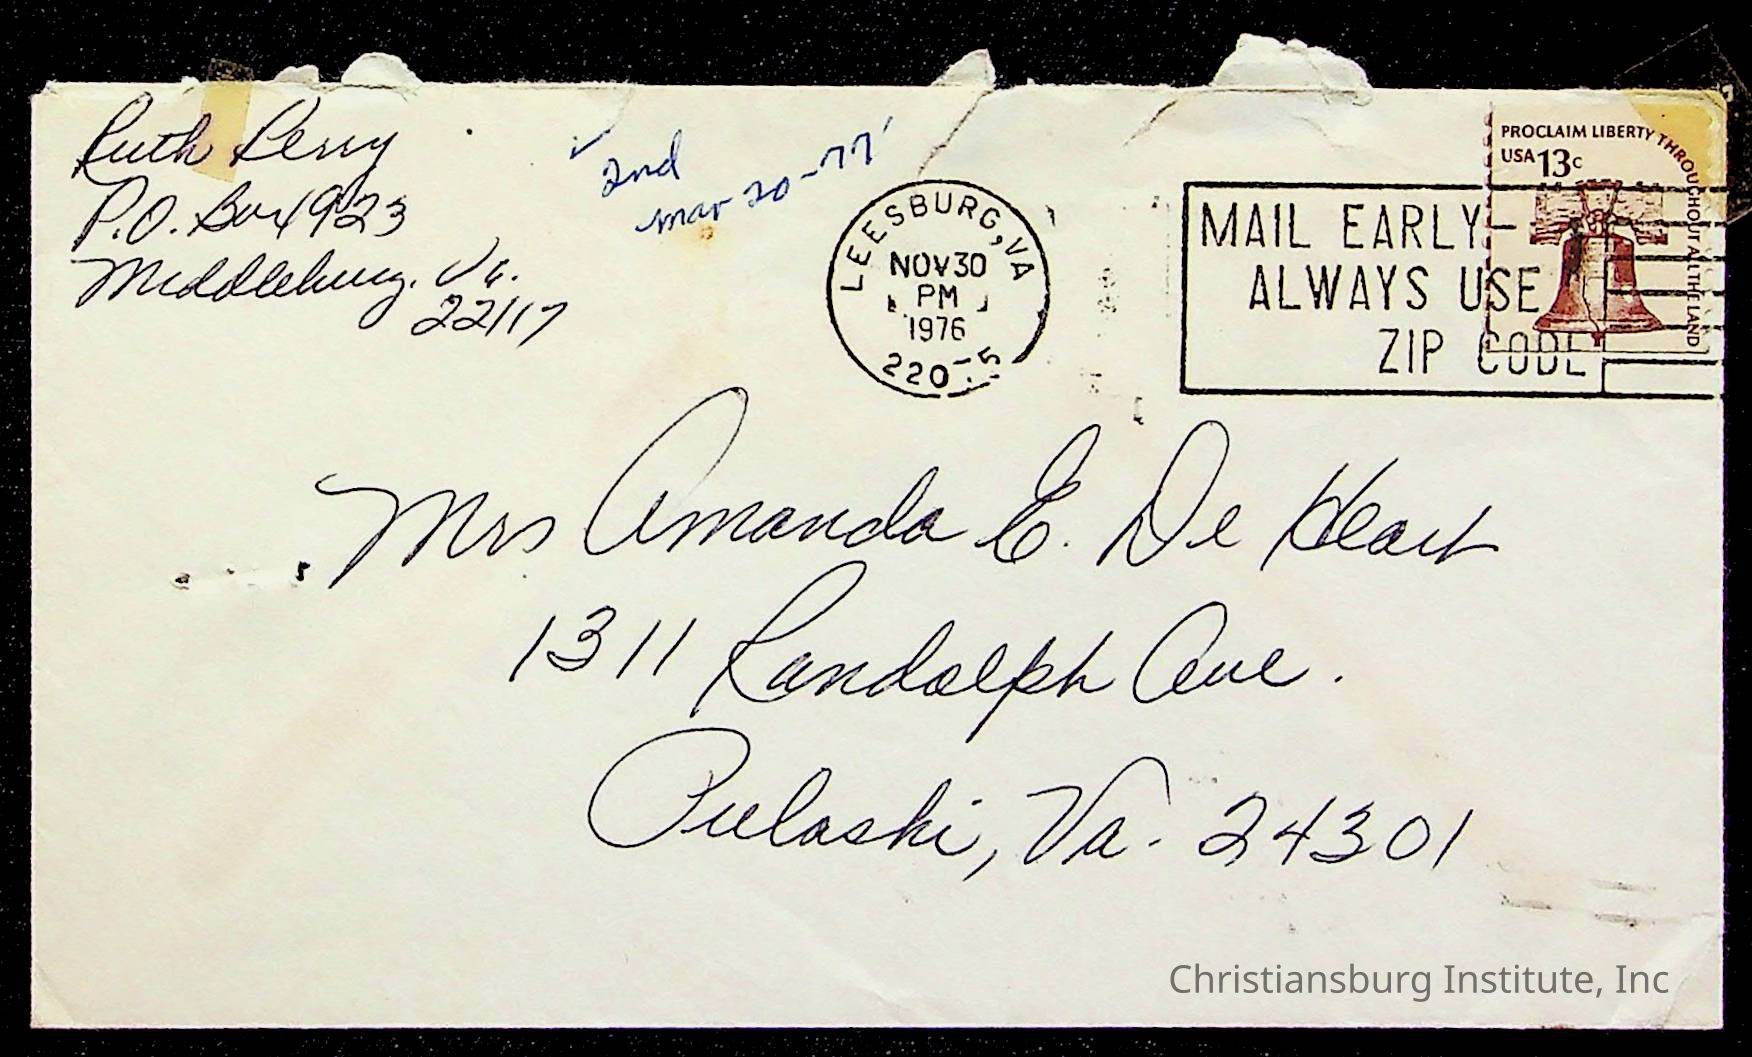 Ruth Perry
P.O. Box 923
Middleburg, Va.
22117
2nd
mar 20-77'
LEESBURG, VA
NOV 30
PM
1976
220
MAIL EARLY-
ALWAYS USE
ZIP CODE
PROCLAIM LIBERTY THROUGHOUT ALL THE LAND
USA 13c
Mrs Amanda E. De Heart
1311 Randolph Ave.
Pulaski, Va. 24301
Christiansburg Institute, Inc